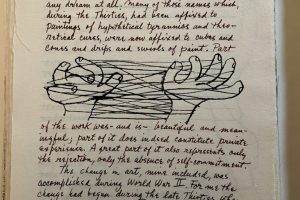 any dream at all. Many of those names which,
during the Thirties, had been affixed to
paintings of hypothetical tyrannies and theo-
retical cures, were now affixed to cubes and
cones and drips and swirls of paint. Part
of the work was - and is - beautiful and mean-
ingful; part of it does indeed constitute private
experience. A great part of it also represents only
the rejection, only the absence of self-commitment.
The change in art, mine included, was
accomplished during World War II. For me the
change had begun during the late Thirties